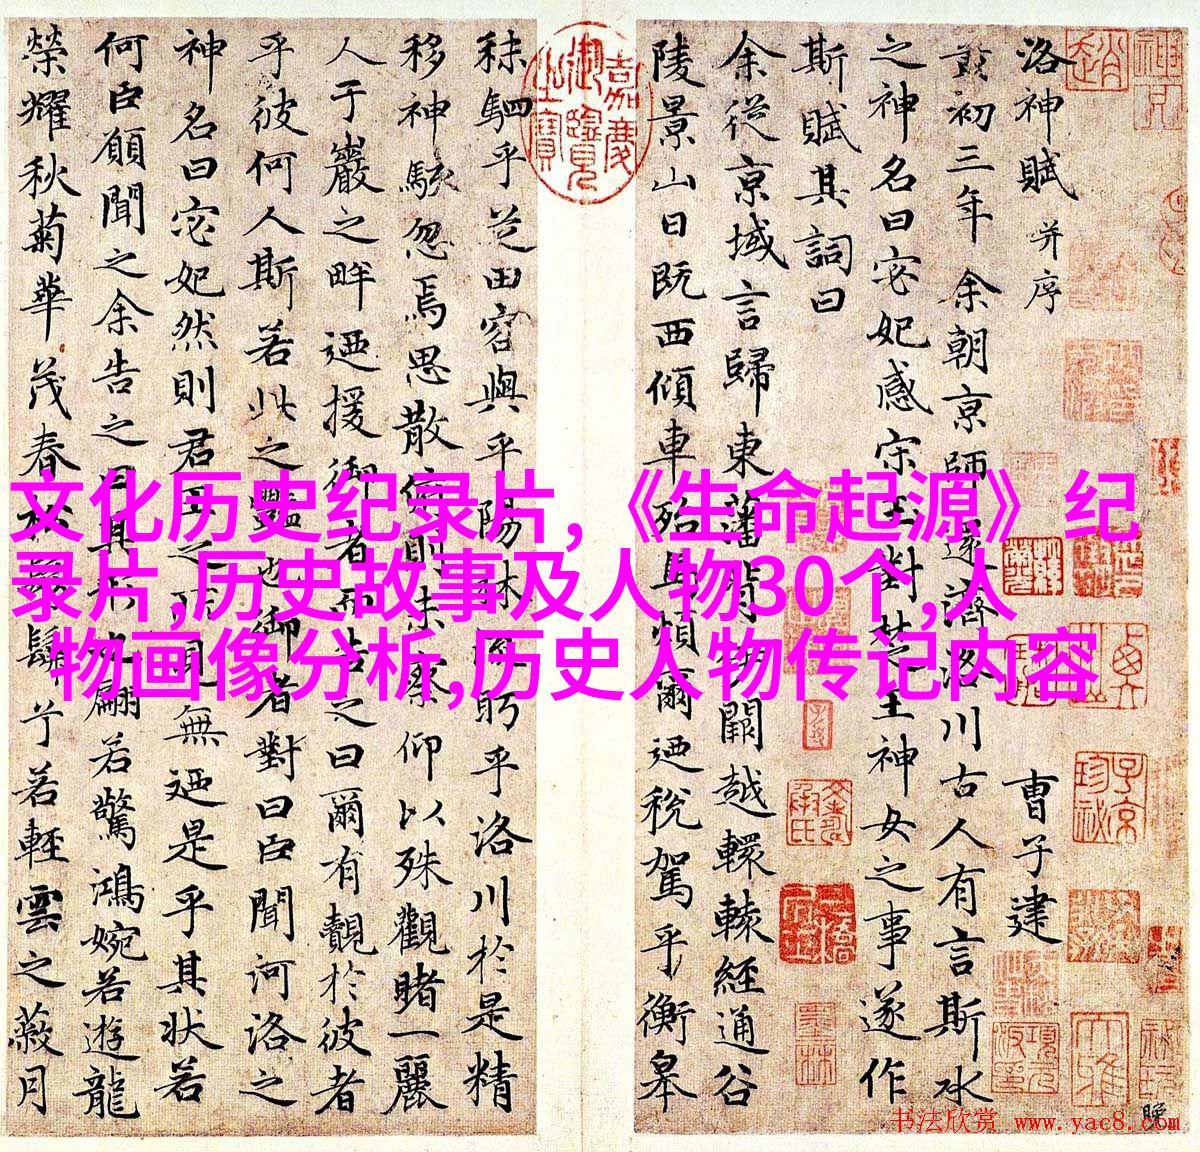 洛神賦 并序 曹子建
黃初三年余朝京師還濟洛川古人有言斯水
之神名曰宓妃感宋玉對楚王神女之事遂作
斯賦其詞曰
余從京域言歸東藩背伊闕越轘轅經通谷
陵景山日既西傾車殆馬煩爾迺稅駕乎衡皋
秣駟乎芝田容與乎陽林流眄乎洛川於是精
移神駭忽焉思散俯則未察仰以殊觀睹一麗
人于巖之畔迺援御者而告之曰爾有觀於彼者
乎彼何人斯若此之豔也御者對曰臣聞河洛之
神名曰宓妃然則君王之所見無迺是乎其状若
何臣願聞之余告之曰其形也翩若驚鴻婉若遊龍
榮耀秋菊華茂春松髣髴兮若輕雲之蔽月
嘉慶御覽之寶
文化历史纪录片,《生命起源》纪
录片,历史故事及人物30个,人
物画像分析,历史人物传记内容
书法欣赏 www.yac8.com